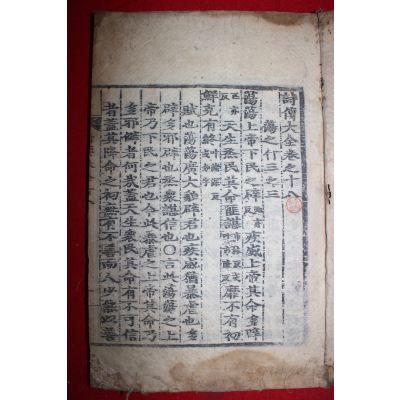 詩傳大全卷之十八
蕩之什三之三
蕩蕩上帝下民之辟疾威上帝其命多辟
天生烝民其命匪諶靡不有初
鮮克有終
賦也蕩蕩廣大貌辟君也疾威猶暴虐也多
辟多邪辟也烝衆諶信也○言此蕩蕩之上
帝乃下民之君也今此暴虐之上帝其命乃
多邪僻者何哉蓋天生衆民其命有不可信
者蓋其降命之初無有不善而人少能以善